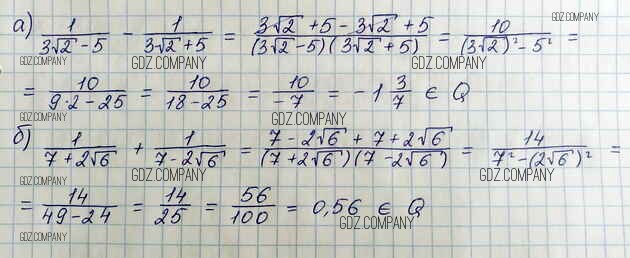 а) 1/(3√2 - 5) - 1/(3√2 + 5) = (3√2 + 5 - 3√2 + 5)/((3√2 - 5)(3√2 + 5)) = 10/((3√2)² - 5²) =
= 10/(9·2 - 25) = 10/(18 - 25) = 10/(-7) = -1 3/7 ∈ Q
б) 1/(7 + 2√6) + 1/(7 - 2√6) = (7 - 2√6 + 7 + 2√6)/((7 + 2√6)(7 - 2√6)) = 14/(7² - (2√6)²) =
= 14/(49 - 24) = 14/25 = 56/100 = 0,56 ∈ Q
GDZ.COMPANY
GDZ.COMPANY
GDZ.COMPANY
GDZ.COMPANY
GDZ.COMPANY
GDZ.COMPANY
GDZ.COMPANY
GDZ.COMPANY
GDZ.COMPANY
GDZ.COMPANY
GDZ.COMPANY
GDZ.COMPANY